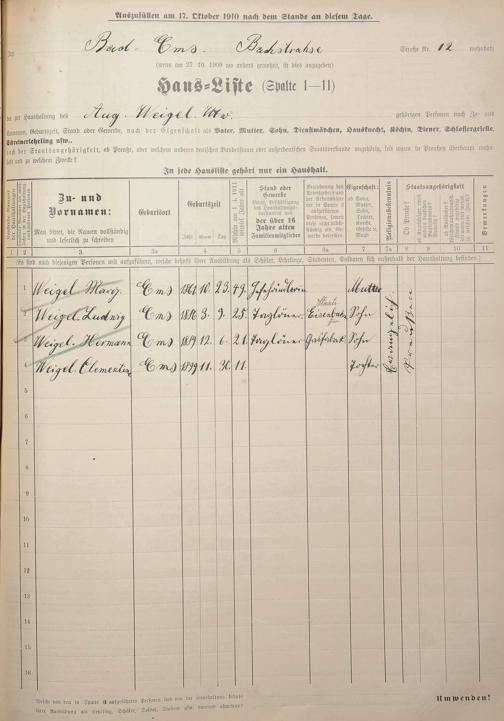 Auszufüllen am 17. Oktober 1910 nach dem Stande an diesem Tage.
Bad-Ems. Bachstrahse Straße Nr. 12 wohnhaft
(wenn am 27. 10. 1909 wo anders gewohnt, ist dies anzugeben)
Haus-Liste (Spalte 1—11)
zur Haushaltung des Aug. Weigel. Ww. gehörigen Personen nach Zu- und
namen, Geburtszeit, Stand oder Gewerbe, nach der Eigenschaft als Vater, Mutter, Sohn, Dienstmädchen, Hausknecht, Köchin, Diener, Schlossergeselle,
Schreinerlehrling usw.,
nach der Staatsangehörigkeit, ob Preuße, oder welchem anderen deutschen Bundesstaat oder außerdeutschen Staatsverbande angehörig, falls in Preußen überhaupt wohn-
und zu welchem Zwecke?
In jede Hausliste gehört nur ein Haushalt.
Zu- und Vornamen:
Man bittet, die Namen vollständig und leserlich zu schreiben
Geburtsort
Geburtszeit
Jahr Monat Tag
Stand oder Gewerbe
der über 16 Jahre alten Familienmitglieder
Eigenschaft:
ob Vater, Mutter, Sohn, Tochter, Knecht, Magd
Religionsbekenntnis
Staatsangehörigkeit
Ob Preuße?
Bemerkungen
1 2 3 3a 4 5 6 6a 7 7a 8 9 10 11
(Es sind auch diejenigen Personen mit aufzuführen, welche behufs ihrer Ausbildung als Schüler, Lehrlinge, Studenten, Soldaten sich außerhalb der Haushaltung befinden.)
1 Weigel Marg. Ems 1861 10. 23. 49. Mutter
Weigel. Ludwig Ems 1886 3. 9. 25. Taglöner. Eisenbahn Sohn
Weigel. Hermann Ems 1889 12. 6. 21. Taglöner Gasfabrik Sohn
4 Weigel. Clementine Ems 1899 11. 30. 11. Tochter
Evangelisch.
Preußen
5
6
7
8
9
10
11
12
13
14
15
16
Welche von den in Spalte 3 aufgeführten Personen sind von der Haushaltung behufs
ihrer Ausbildung als Lehrling, Schüler, Soldat, Student usw. dauernd abwesend?
Umwenden!